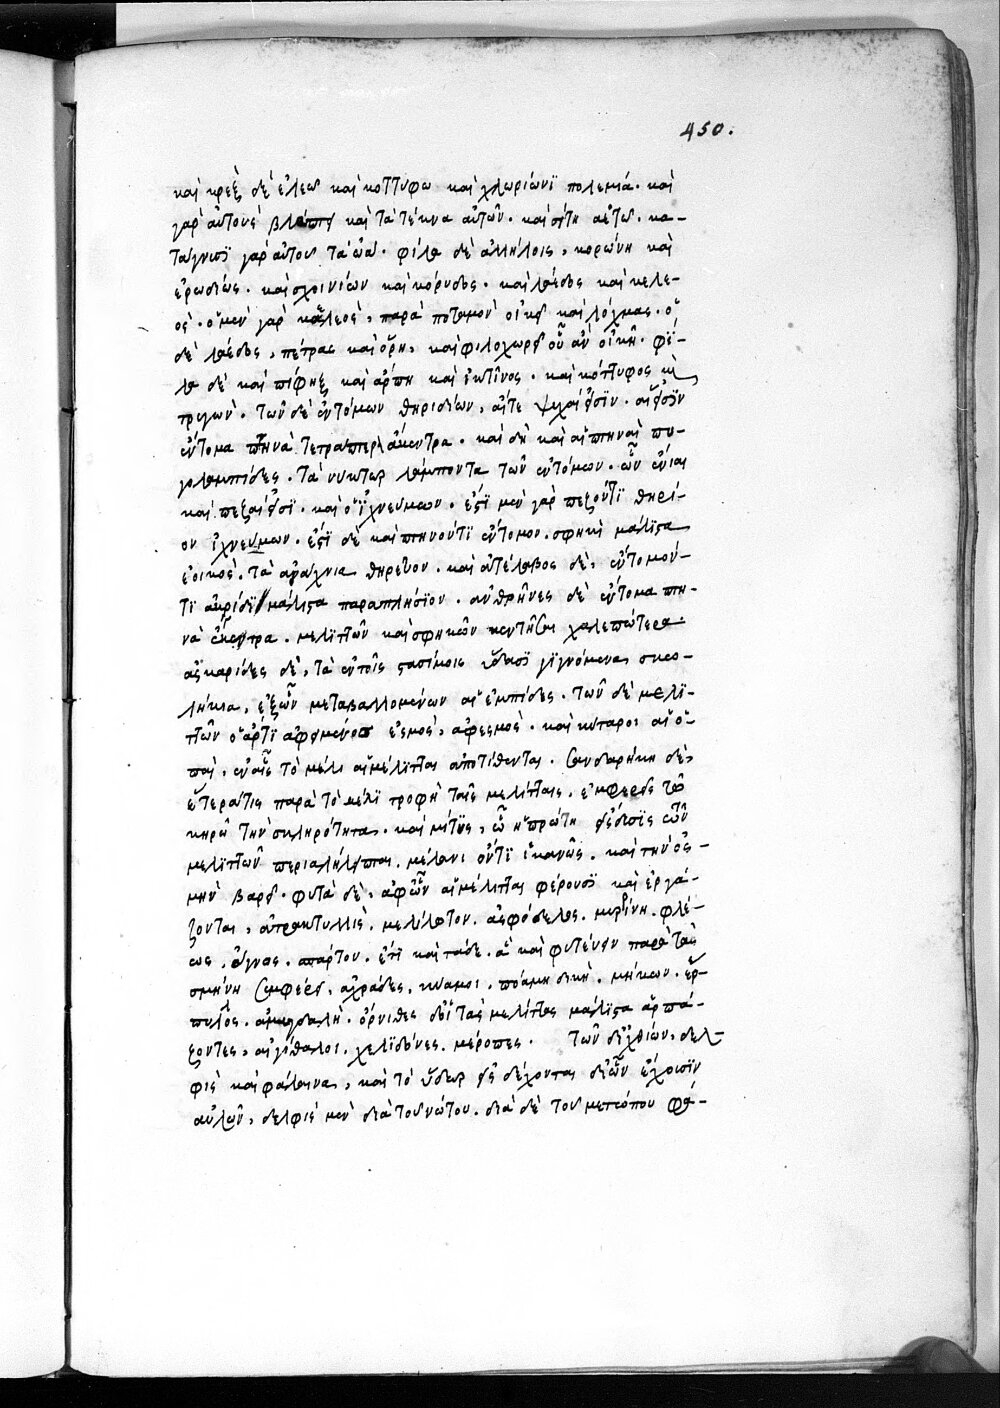 450.
καὶ κρὲξ δὲ ἐλεῶ καὶ κοττύφω καὶ χλωρίωνϊ πολεμιά· καὶ
γὰρ αὐτοὺς βλάπτει καὶ τὰ τέκνα αὐτῶν· καὶ σίτη αετῶ· κα-
τάγνυσϊ γὰρ αὐτοῦ τὰ ὠά· φίλα δὲ ἀλλήλοις, κορώνη καὶ
ἐρωδιὸς· καὶ σχοινίων καὶ κόρυδος· καὶ λάεδος καὶ κελε-
ὸς· ὁ μὲν γὰρ κελεὸς, παρὰ ποταμὸν οἰκεῖ καὶ λόχμας· ὁ
δὲ λάεδος, πέτρας καὶ ὄρη, καὶ φιλοχωρεῖ οὗ ἂν οἰκῆ· φί-
λα δὲ καὶ πίφηξ καὶ ἅρπη καὶ ἰκτῖνος· καὶ κόττυφος καὶ
τρυγὼν· τῶν δὲ ἐντόμων θηριδίων, αἵτε ψυχαί εἰσϊν· αἵ εἰσϊν
ἔντομα πτηνὰ τετράπτερα ἄκεντρα· καὶ δὴ καὶ αἱ πτηναὶ πυ-
γολαμπίδες· τὰ νύκτωρ λάμποντα τῶν ἐντόμων· ὧν ἔνιαι
καὶ πεζαί εἰσϊ· καὶ οἱ ἰχνεύμων· ἐστϊ μὲν γὰρ πεζόντϊ θηρί-
ον ἰχνεύμων· ἐστϊ δὲ καὶ πτηνόντϊ ἔντομον· σφηκὶ μάλϊστα
ἐοικὸς· τὰ ἀράχνια θηρεῦον· καὶ ἀττέλαβος δὲ, ἔντομόν-
τϊ ἀκρίδϊ μάλϊστα παραπλήσϊον· ἀνθρῆνες δὲ ἔντομα πτη-
νὰ ἔκεντρα· μελϊττῶν καὶ σφηκῶν κεντῆσαι χαλεπώτερα
ἀσκαρίδες δὲ, τὰ ἐν τοῖς στασίμοις ὕδασϊ γϊγνόμενα σκω-
λήκια, ἐξ ὧν μεταβαλλομένων αἱ ἐμπίδες· τῶν δὲ μελϊ-
ττῶν ὁ ἄρτϊ ἀφειμένος ἑσμὸς, ἀφεσμὸς· καὶ κύταροι αἱ ὀ-
παὶ, ἐν αἷς τὸ μέλι αἱ μέλϊτται ἀποτίθενται· σανδαρίκη δὲ,
ἑτέρα τὶς παρὰ τὸ μέλϊ τροφὴ ταῖς μελίτταις, ἐμφερὴς τῶ
κηρῶ τὴν σκληρότητα· καὶ μίτυς, ὧ ἡ πρώτη εἴσδυσϊς τῶν
μελϊττῶν περιαλήλιπται, μέλανι ὄντϊ ἱκανῶς, καὶ τὴν ὀσ-
μὴν βαρεῖ· φυτὰ δὲ, ἀφ' ὧν αἱ μέλιτται φέρουσϊ καὶ ἐργά-
ζονται, ἀτρακτυλλὶς, μελίλωτον, ἀσφόδελος, μυρρίνη, φλέ-
ως, ἄγνος, σπάρτον, ἔτϊ καὶ τάδε, ἃ καὶ φυτεύειν παρὰ τὰ
σμήνη συμφέρει, ἀχράδες, κύαμοι, πόα μηδικὴ, μήκων, ἕρ-
πυλος, ἀμυγδαλῆ· ὄρνιθες δ' οἱ τὰς μελίττας μάλϊστα ἁρπά-
ζοντες, αἰγίθαλοι, χελϊδόνες, μέροπες· τῶν δ' ἰχθύων, δελ-
φὶς καὶ φάλαινα, καὶ τὸ ὕδωρ εἰσδέχονται δι' ὧν ἔχουσϊν
αὐλῶν, δελφὶς μὲν διὰ τοῦ νώτου· διὰ δὲ τοῦ μετώπου φά-